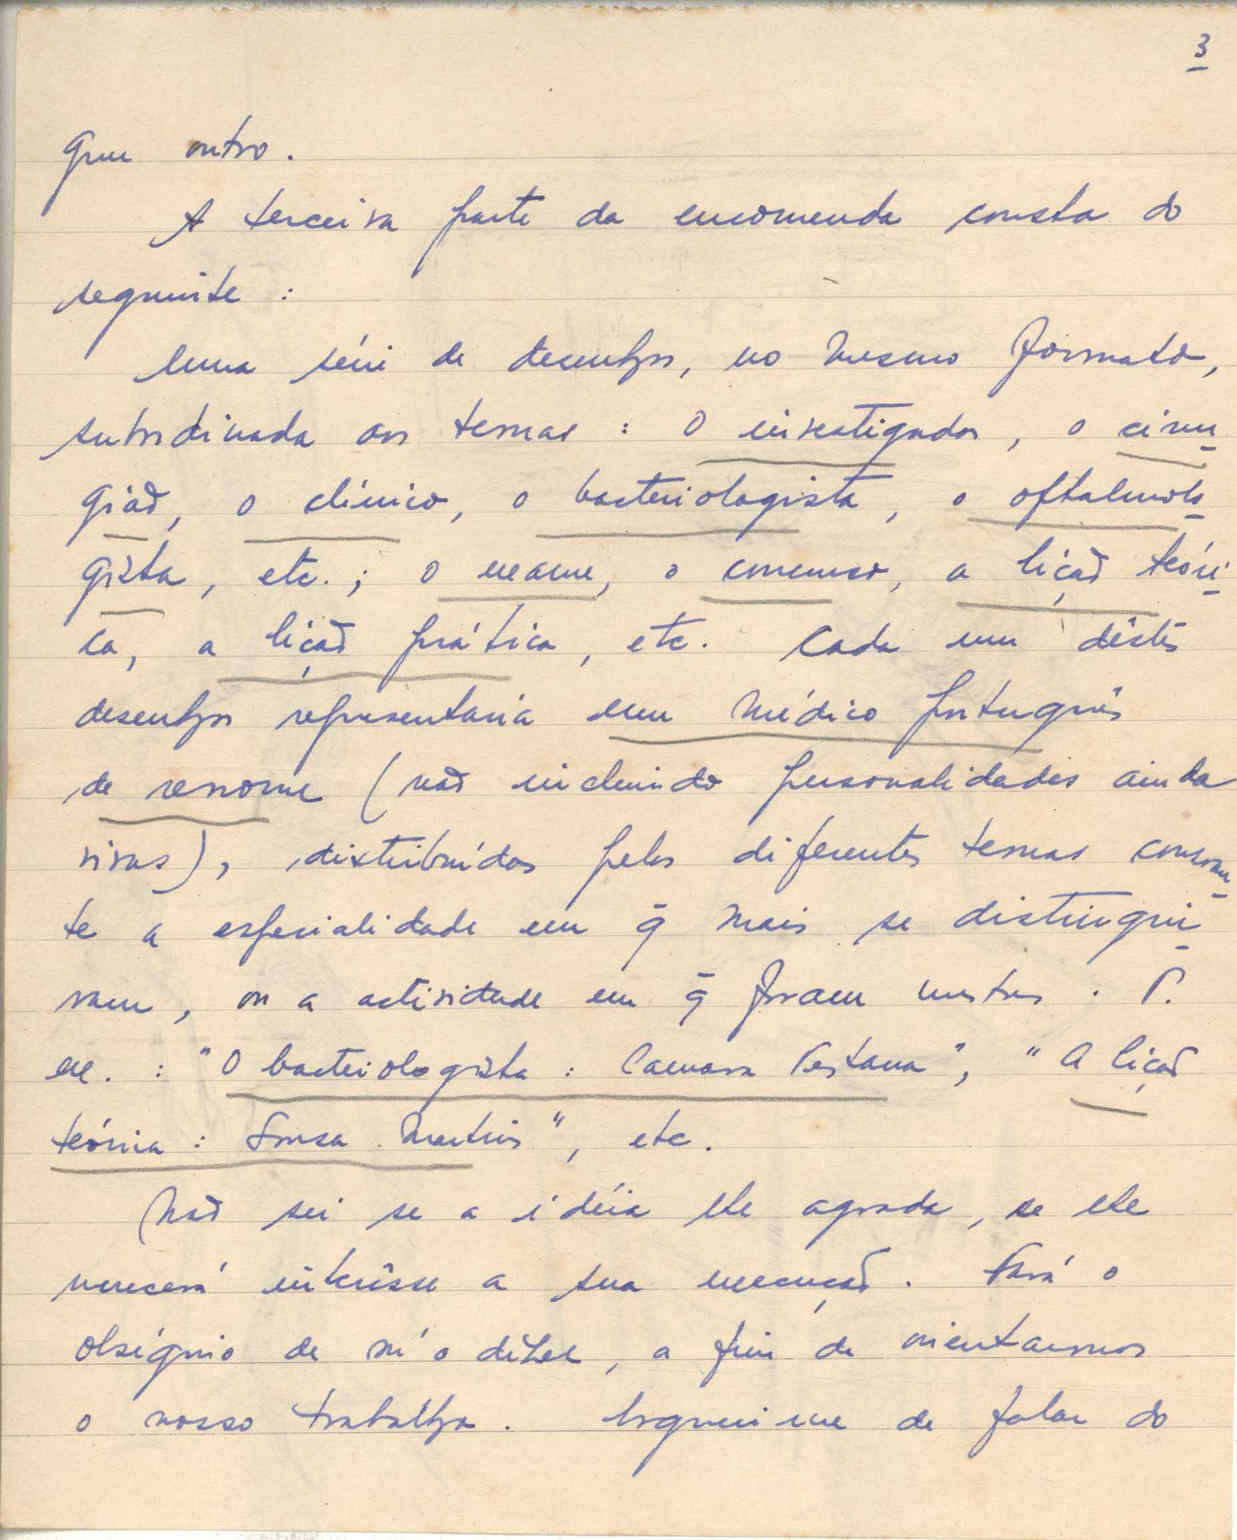 3
quer outro.
A terceira parte da encomenda consta do
seguinte :
Uma série de desenhos, no mesmo formato,
subordinada aos temas : O investigador, o cirur-
gião, o clínico, o bacteriologista, o oftalmolo-
gista, etc. ; o exame, o concurso, a lição teóri-
ca, a lição prática, etc. Cada um dêstes
desenhos representaria um médico português
de renome (não incluindo personalidades ainda
vivas), distribuídos pelos diferentes temas consoan-
te a especialidade em q̄ mais se distingui-
ram, ou a actividade em q̄ foram mestres. P.
ex. : "O bacteriologista : Camara Pestana", "A lição
teórica : Sousa Martins", etc.
Não sei se a idéia lhe agrada, se lhe
merecerá interêsse a sua execução. Fará o
obséquio de m'o dizer, a fim de orientarmos
o nosso trabalho. Esqueci-me de falar do